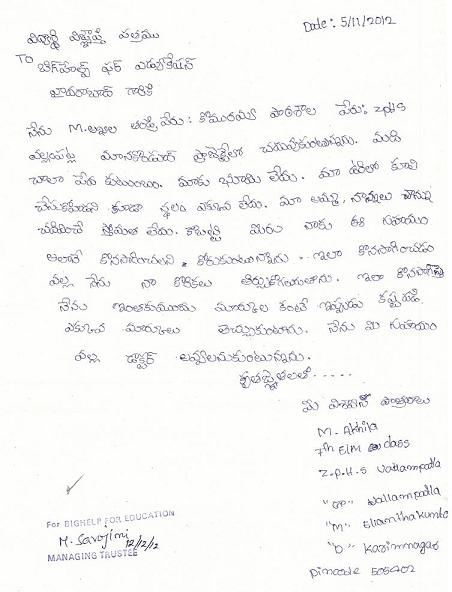 Date: 5/11/2012
విద్యార్థి విజ్ఞప్తి పత్రము
TO బిగ్‌హెల్ప్ ఫర్ ఎడ్యుకేషన్
హైదరాబాద్ గారికి
నేను M.అఖిల తండ్రి పేరు: కొమురయ్య పాఠశాల పేరు: ZPHS
వల్లంపట్ల చదువుకుంటున్నాను. మాది
చాలా పేద కుటుంబం. మాకు భూమి లేదు. మా ఊరిలో కూలి
చేసుకోవడానికి కూడా స్థలం ఎక్కువ లేదు. మా అమ్మ, నాన్నలు నన్ను
చదివించే స్తోమత లేదు. కాబట్టి మీరు నాకు ఈ సహాయం
అలాగే కొనసాగించాలని కోరుకుంటున్నాను. ఇలా కొనసాగించడం
వల్ల నేను నా కోరికలు తీర్చుకోగలుగుతాను. ఇలా కొనసాగిస్తే
నేను ఇంతకుముందు మార్కుల కంటే ఇప్పుడు కష్టపడి
ఎక్కువ మార్కులు తెచ్చుకుంటాను. నేను మీ సహాయం
వల్ల డాక్టర్ అవ్వాలనుకుంటున్నాను.
కృతజ్ఞతలతో.....
మీ విశ్వాస పాత్రురాలు
M. Akhila
7th E/M class
Z.P.H.S Vallampatla
"GP" Vallampatla
"M" Ellanthakunta
"D" Karimnagar
Pincode 505402
For BIGHELP FOR EDUCATION
M. Sarojini 12/12/12
MANAGING TRUSTEE